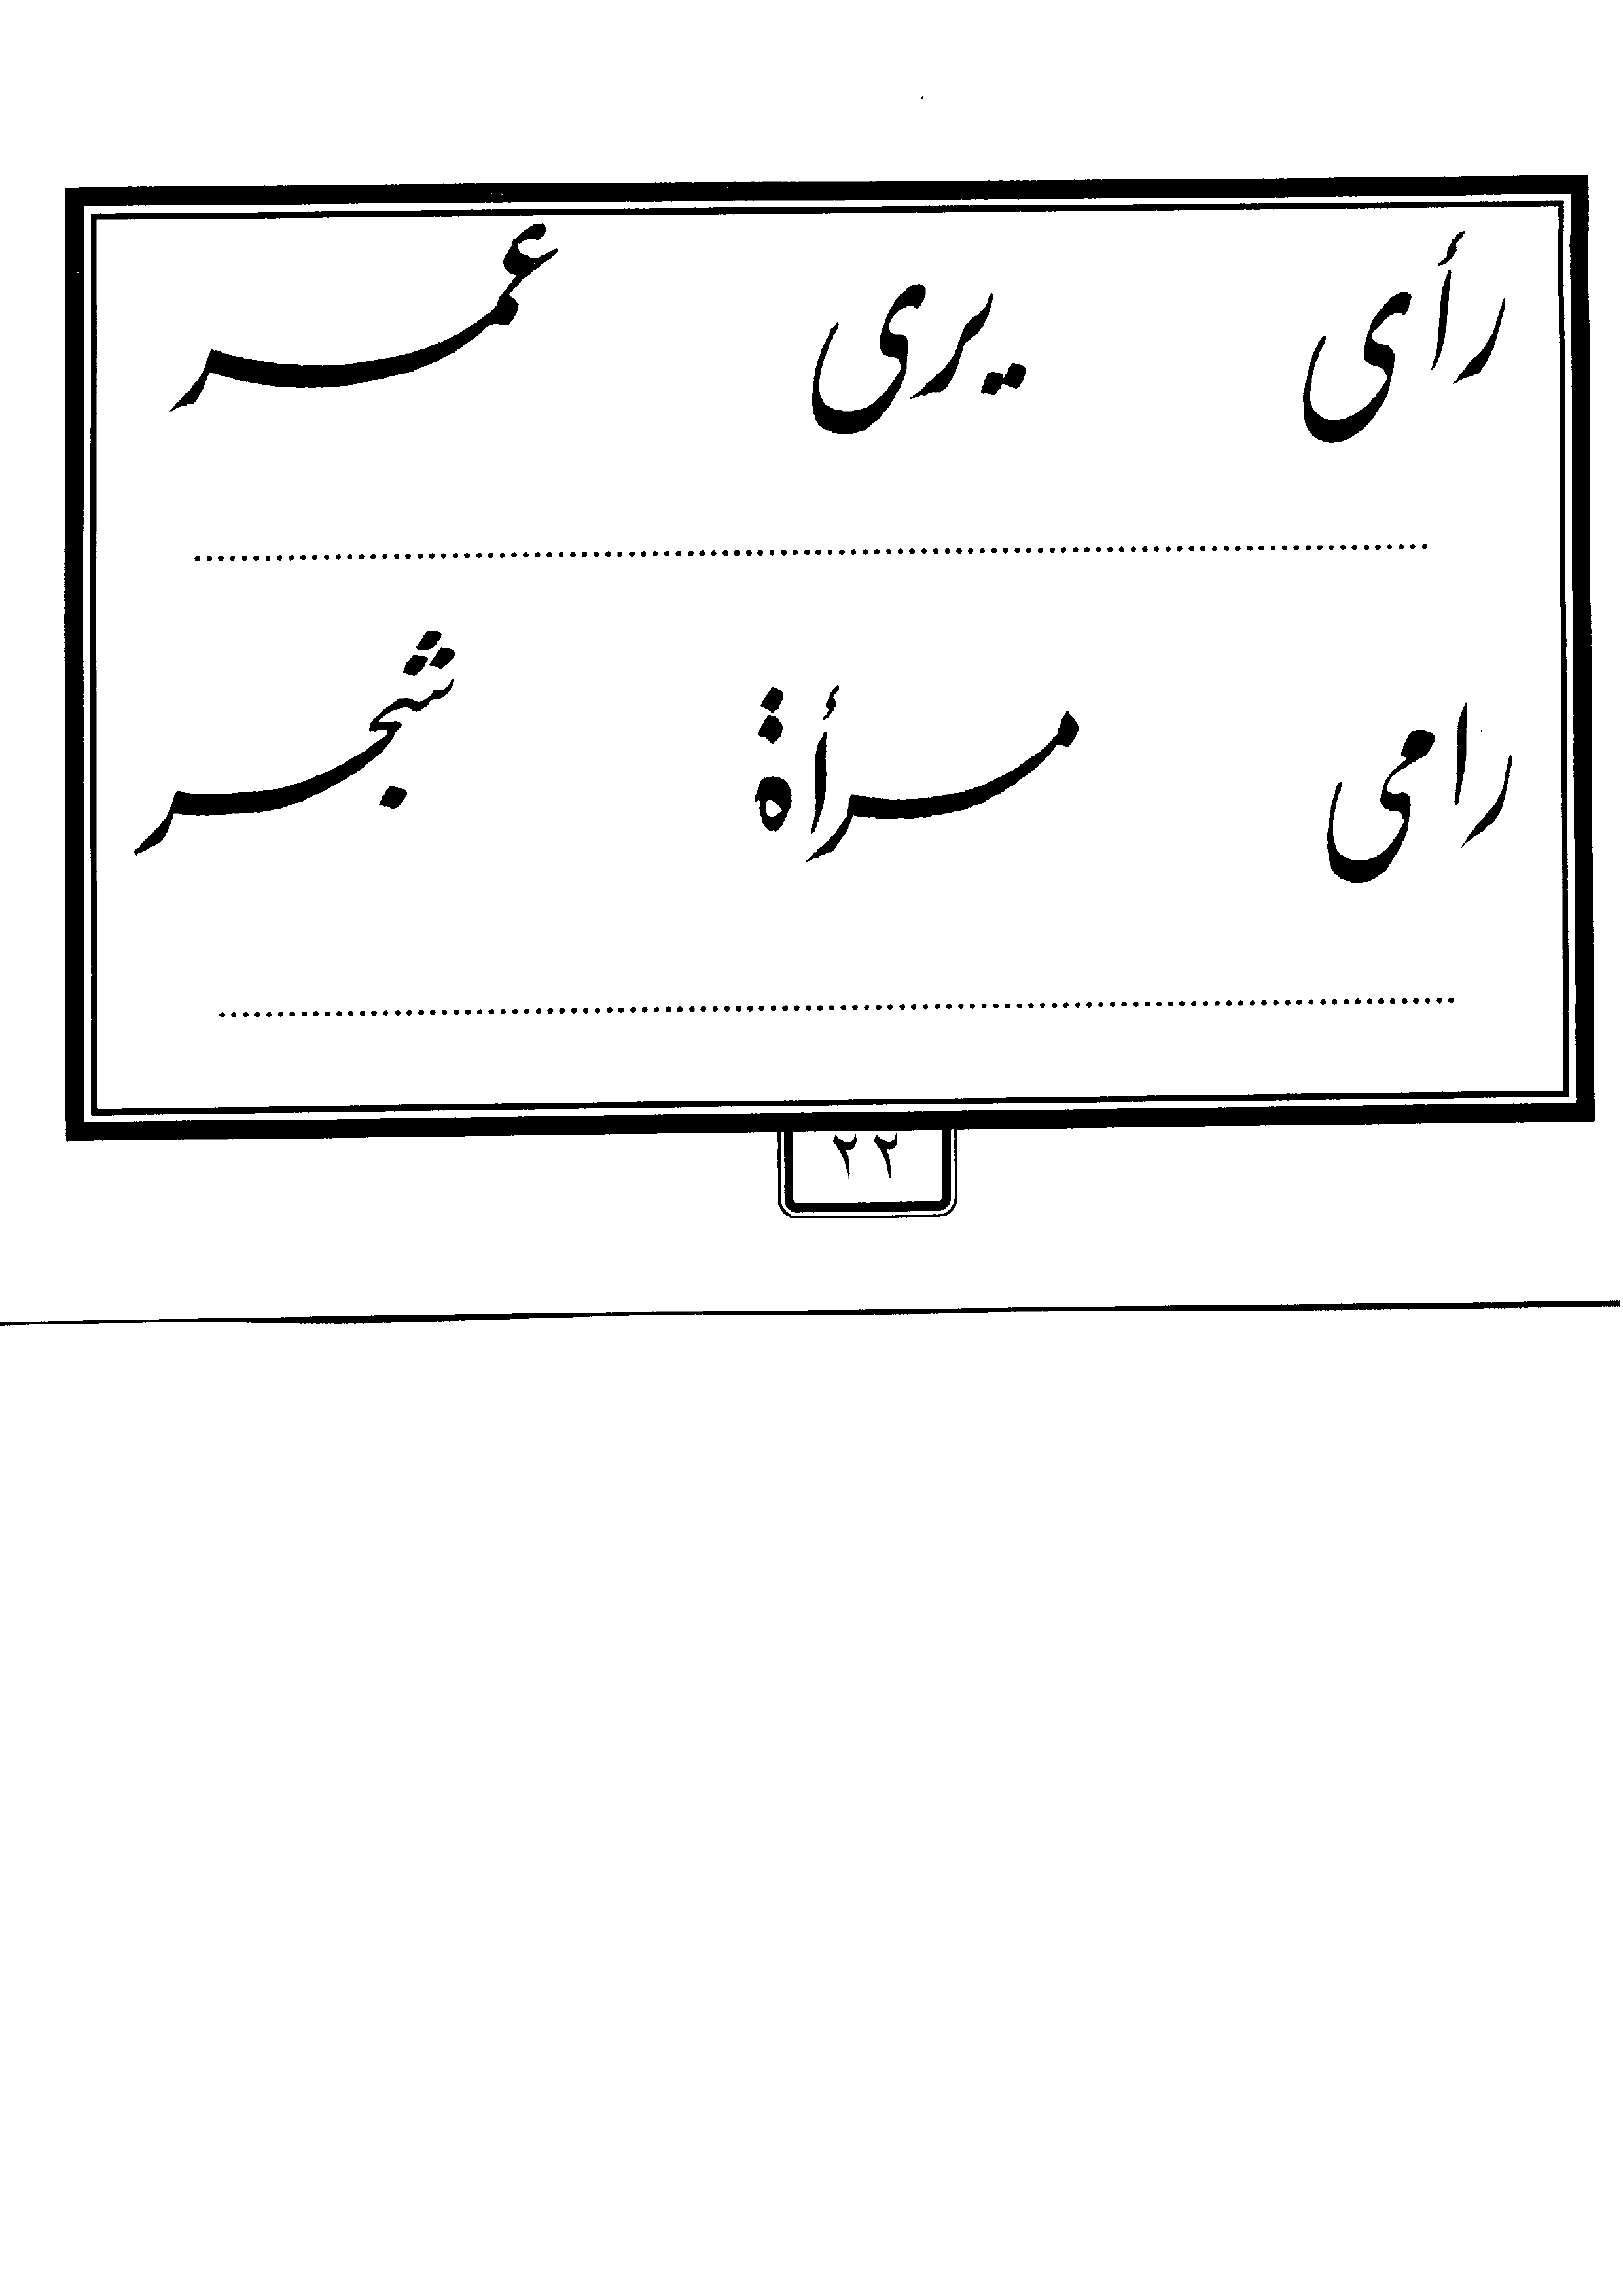 رأى يرى عمر
رامى مرأة شجر
٢٢